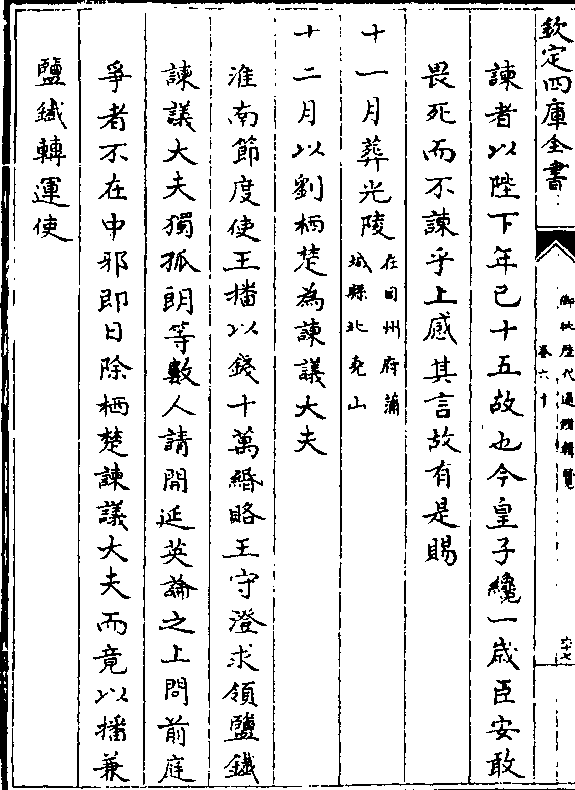 欽定四庫全書
御批歷代通鑑輯覽
卷六十
六十七
諫者以陛下年已十五故也今皇子纔一歳臣安敢
畏死而不諫乎上感其言故有是賜
十一月葬光陵在同州府蒲
城縣北堯山
十二月以劉栖楚為諫議大夫
淮南節度使王播以錢十萬緡賂王守澄求領鹽鐡
諫議大夫獨孤朗等數人請開延英論之上問前庭
爭者不在中邪即日除栖楚諫議大夫而竟以播兼
鹽鐡轉運使